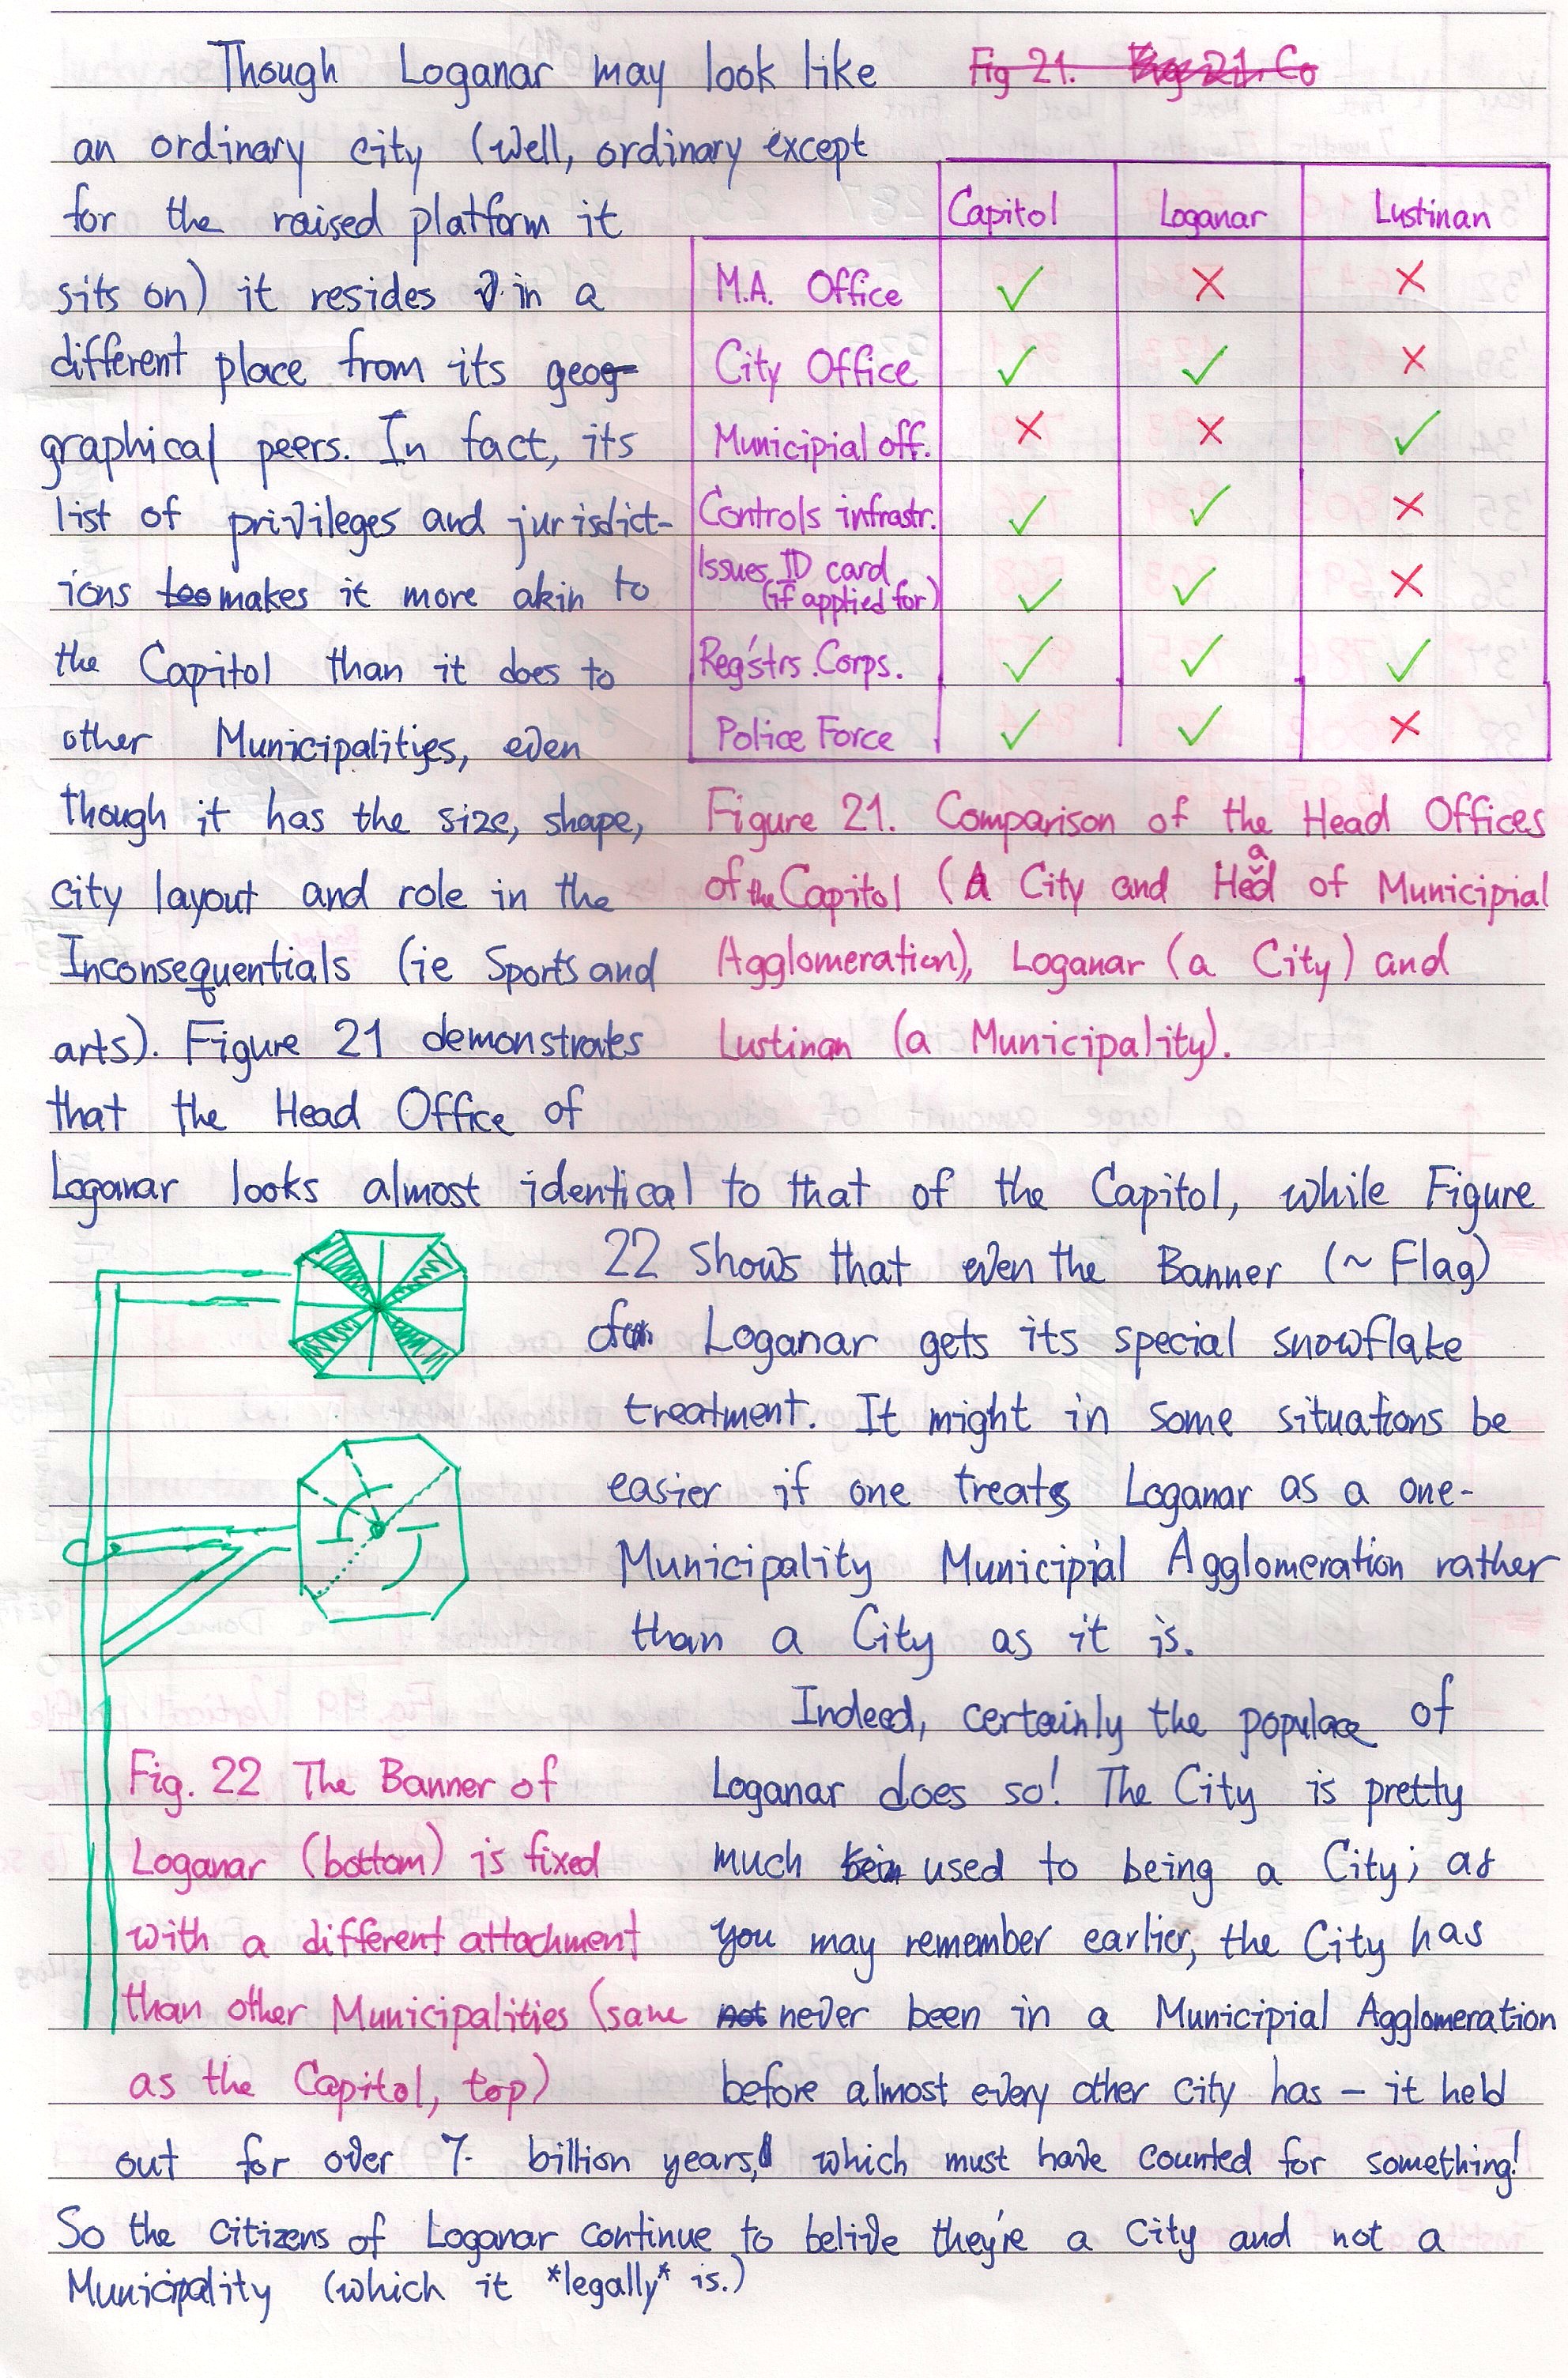 Though Loganar may look like
an ordinary city (well, ordinary except
for the raised platform it
sits on) it resides in a
different place from its geog-
graphical peers. In fact, its
list of privileges and jurisdict-
ions makes it more akin to
the Capitol than it does to
other Municipalities, even
though it has the size, shape,
city layout and role in the
Inconsequentials (ie Sports and
arts). Figure 21 demonstrates
that the Head Office of
Loganar looks almost identical to that of the Capitol, while Figure
Fig 21. Fig 21. Co
Capitol Loganar Lustinan
M.A. Office ✓ ✗ ✗
City Office ✓ ✓ ✗
Municipial off. ✗ ✗ ✓
Controls infrastr. ✓ ✓ ✗
Issues ID card
(if applied for) ✓ ✓ ✗
Reg'strs. Corps. ✓ ✓ ✓
Police Force ✓ ✓ ✗
Figure 21. Comparison of the Head Offices
of the Capitol (A City and Head of Municipial
Agglomeration), Loganar (a City) and
Lustinan (a Municipality).
22 shows that even the Banner (~ Flag)
Loganar gets its special snowflake
treatment. It might in some situations be
easier if one treats Loganar as a one-
Municipality Municipial Agglomeration rather
than a City as it is.
Indeed, certainly the populace of
Loganar does so! The City is pretty
much used to being a City; as
you may remember earlier, the City has
not never been in a Municipial Agglomeration
before almost every other city has – it held
out for over 7 billion years, which must have counted for something!
So the citizens of Loganar continue to belive they're a City and not a
Municipality (which it *legally* is.)
Fig. 22 The Banner of
Loganar (bottom) is fixed
with a different attachment
than other Municipalities (same
as the Capitol, top)